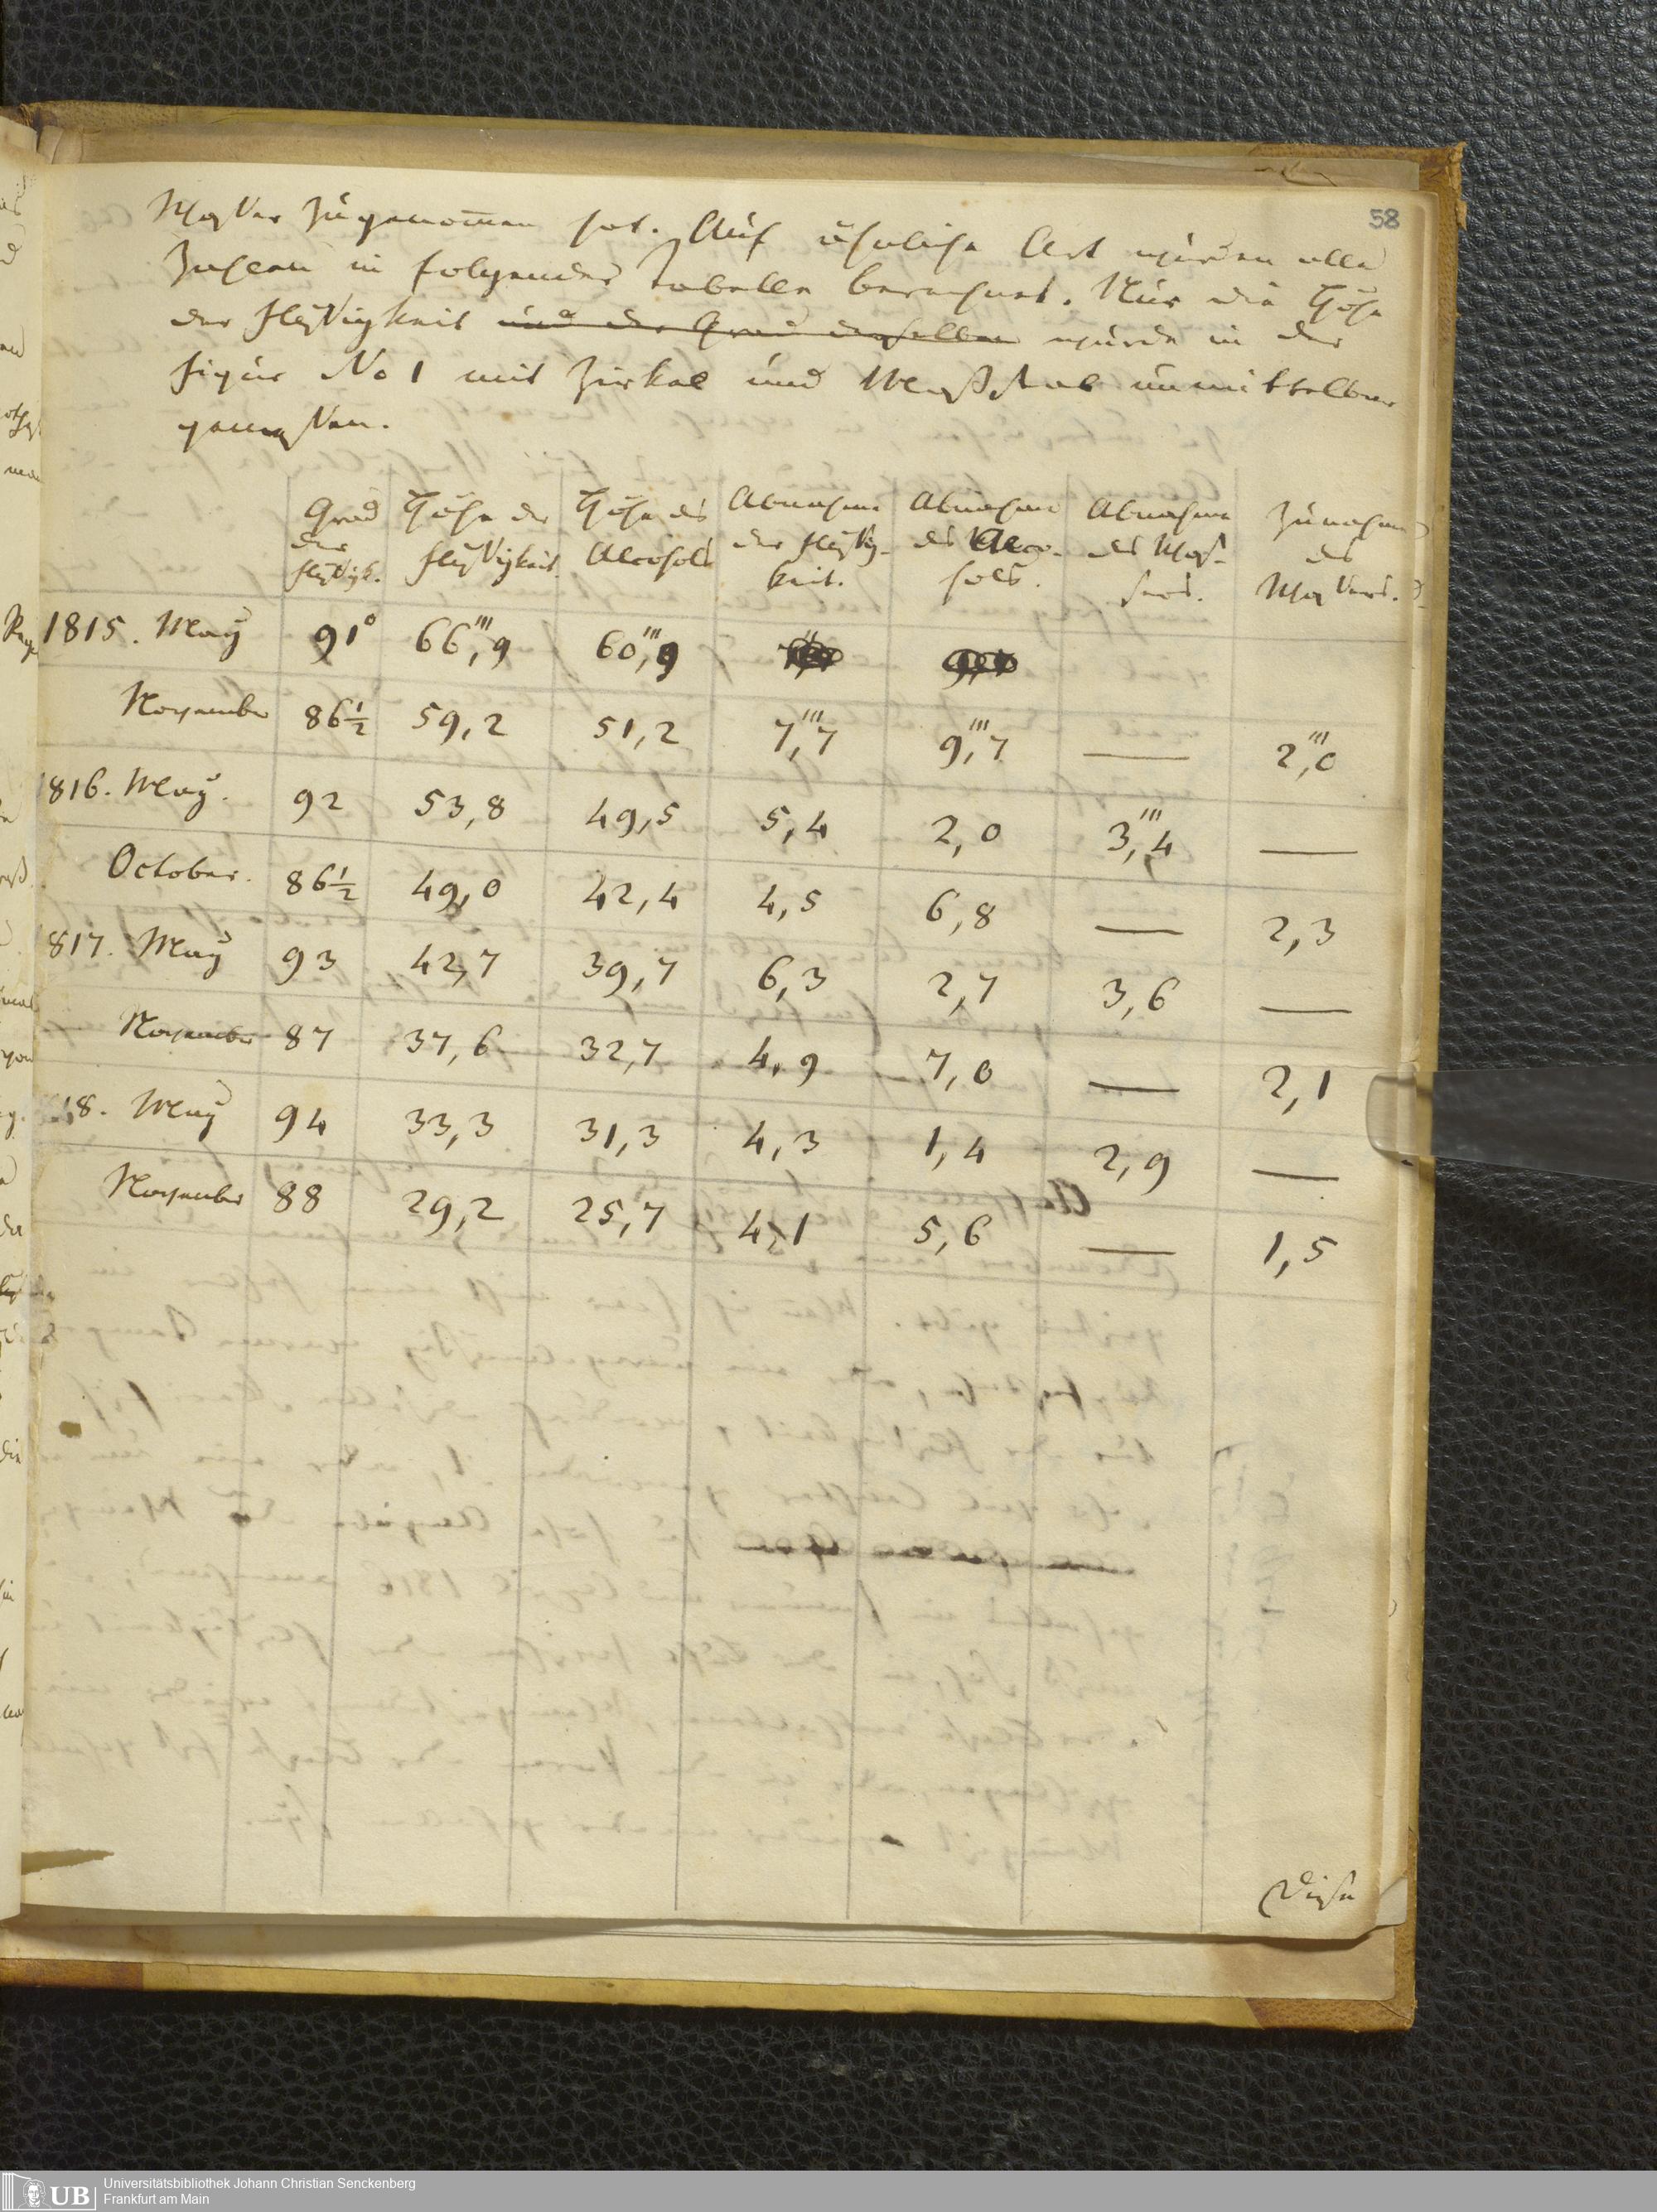 58
Wasser zugenom̅en hat. Auf ähnliche Art wurden alle
Zahlen in folgender Tabelle berechnet. Nur die Höhe
der Flüssigkeit und der Grad derselben wurde in der
Figur No 1 mit Zirkel und Maßstab unmittelbar
gemessen.
Grad der Flüssigk. | Höhe der Flüssigkeit. | Höhe des Alcohols | Abnahme der Flüssigkeit. | Abnahme des Alcohols. | Abnahme des Wassers. | Zunahme des Wassers.
1815. May 91° 66‴,9 60‴,9
November 86½ 59,2 51,2 7‴,7 9‴,7 — 2‴,0
1816. May. 92 53,8 49,5 5,4 2,0 3‴,4 —
October. 86½ 49,0 42,4 4,5 6,8 — 2,3
1817. May 93 42,7 39,7 6,3 2,7 3,6 —
November 87 37,6 32,7 4,9 7,0 — 2,1
18. May 94 33,3 31,3 4,3 1,4 2,9 —
November 88 29,2 25,7 4,1 5,6 — 1,5
Diese
UB
Universitätsbibliothek Johann Christian Senckenberg
Frankfurt am Main